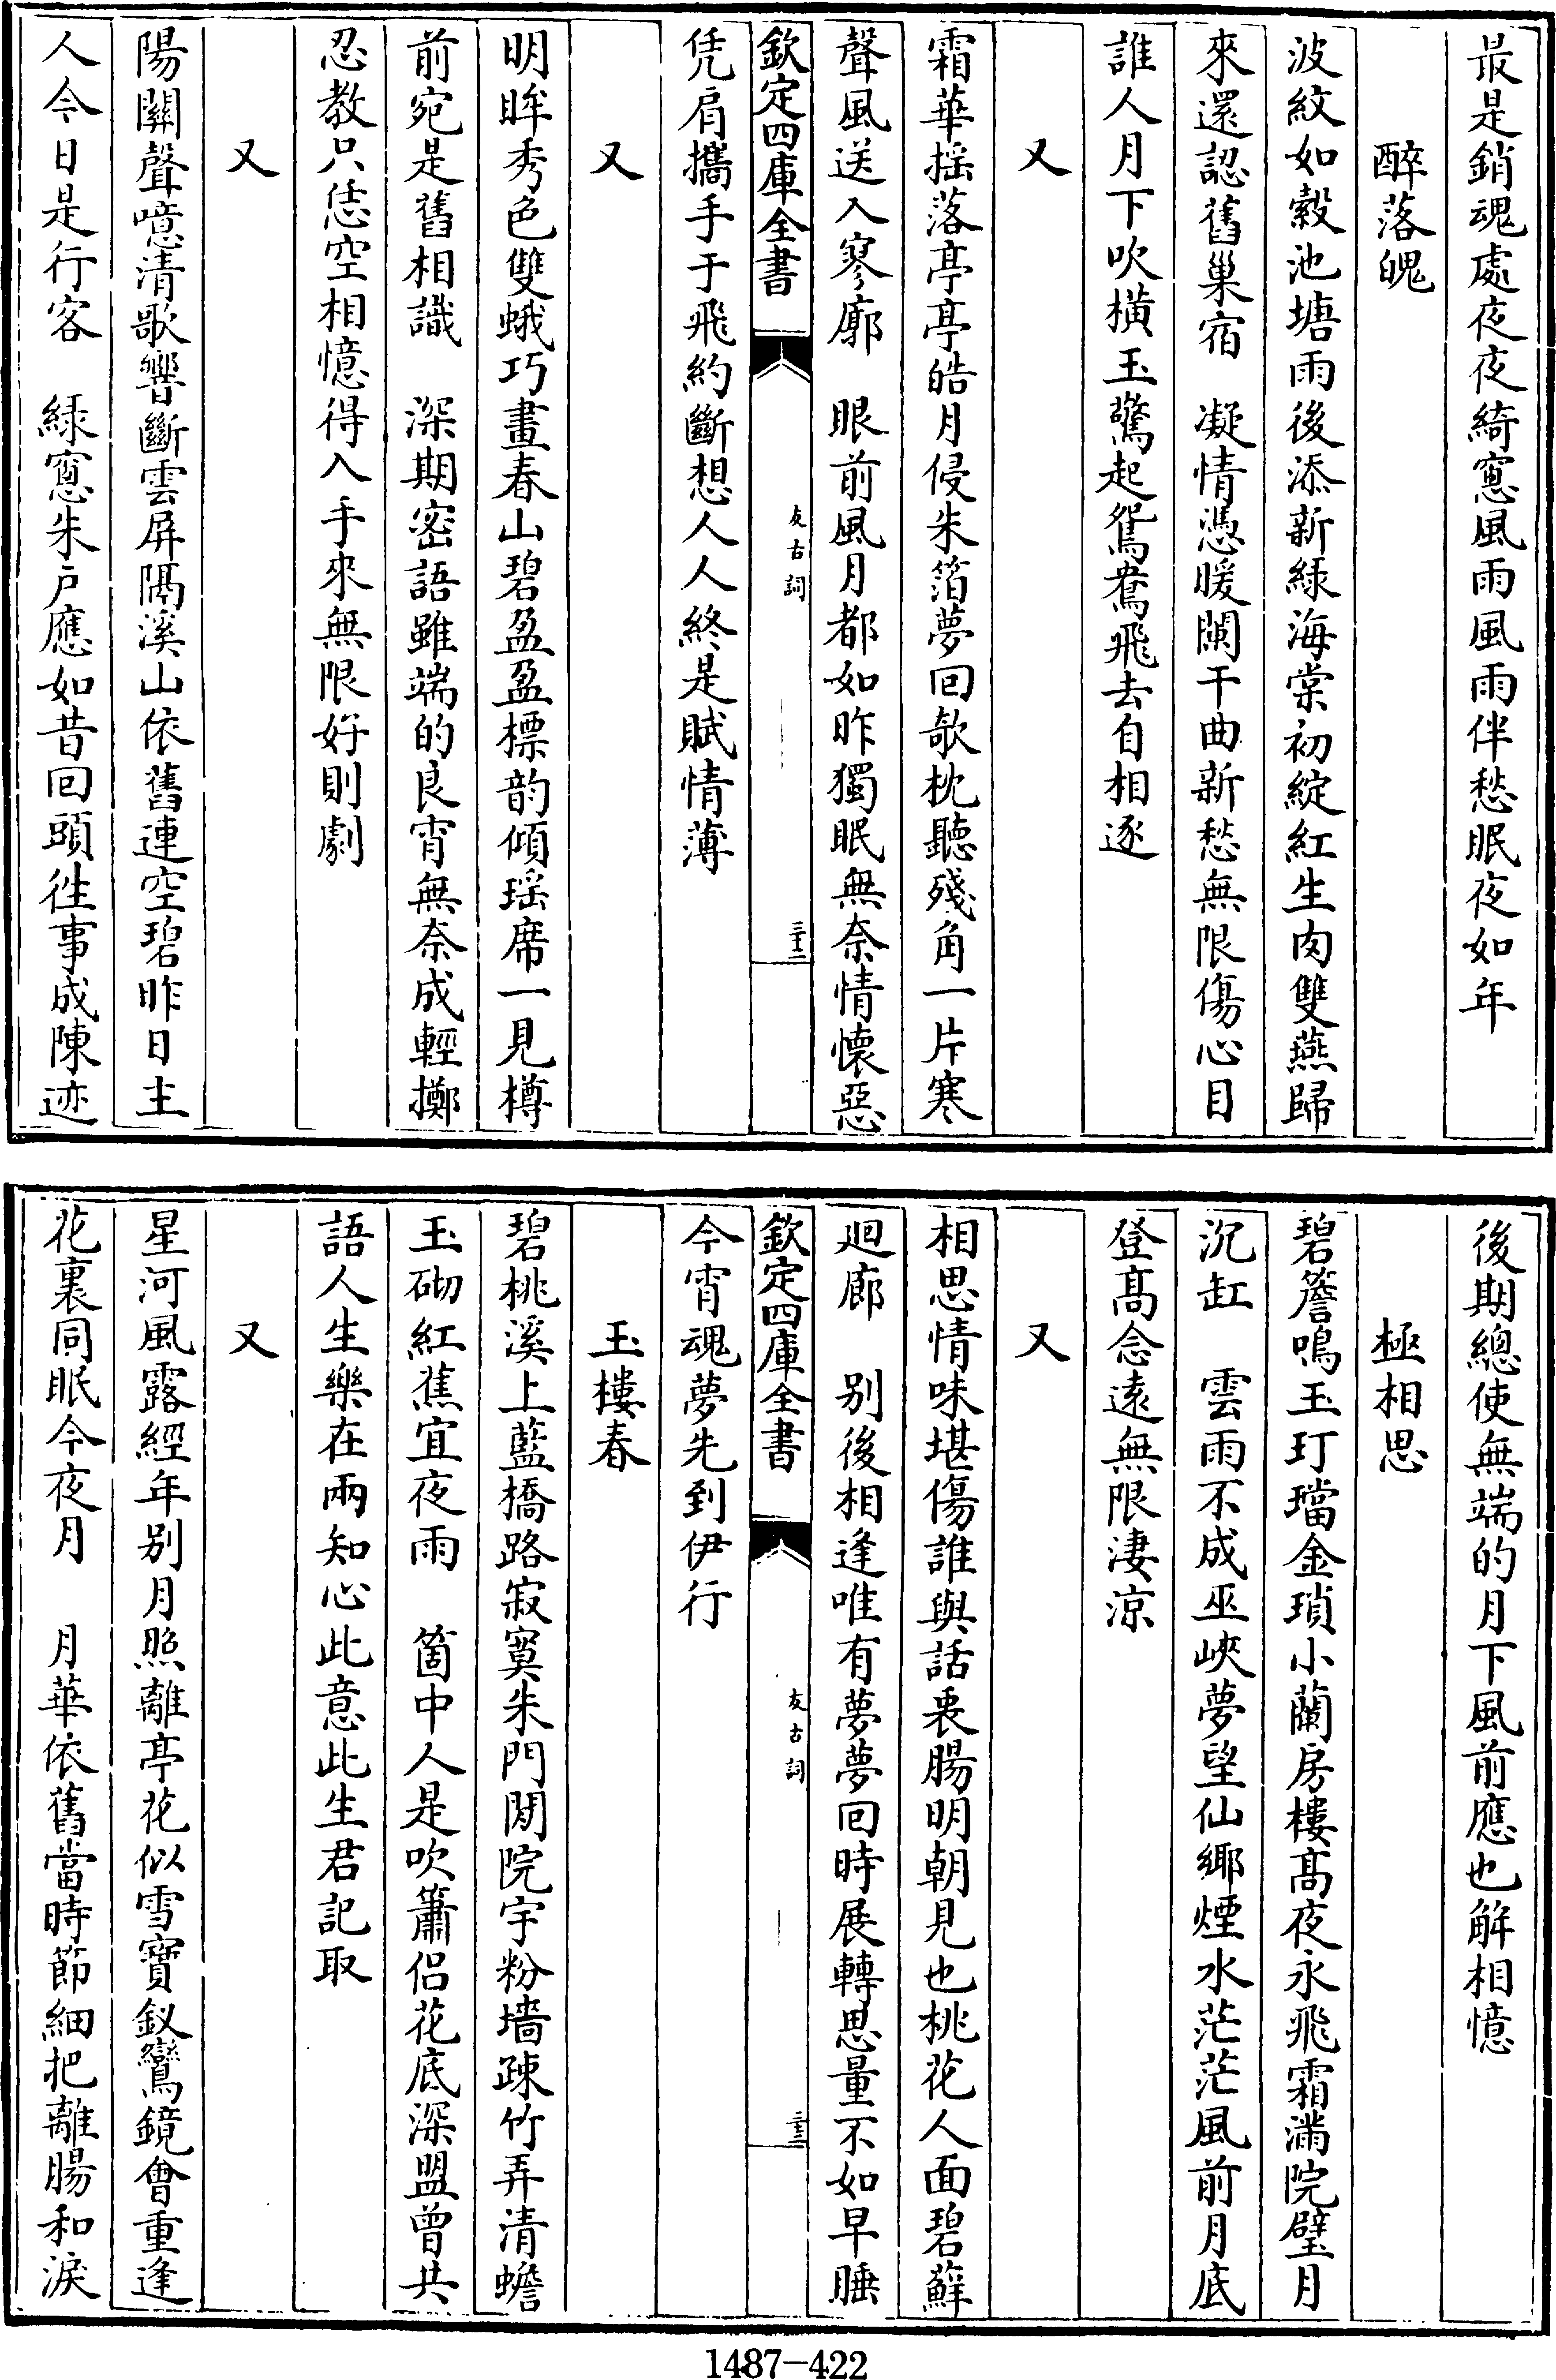 最是銷魂處夜夜綺窻風雨風雨伴愁眠夜如年
醉落魄
波紋如縠池塘雨後添新緑海棠初綻紅生肉雙燕歸
來還認舊巢宿　凝情憑暖闌干曲新愁無限傷心目
誰人月下吹横玉驚起鴛鴦飛去自相逐
又
霜華揺落亭亭皓月侵朱箔夢回欹枕聽殘角一片寒
聲風送入寥廓　眼前風月都如昨獨眠無奈情懷惡
欽定四庫全書
友古詞
三十二
凭肩攜手于飛約斷想人人終是賦情薄
又
明眸秀色雙蛾巧畫春山碧盈盈標韵傾瑶席一見樽
前宛是舊相識　深期密語雖端的良宵無奈成輕擲
忍教只恁空相憶得入手來無限好則劇
又
陽關聲噫清歌響斷雲屏隔溪山依舊連空碧昨日主
人今日是行客　緑窻朱户應如昔回頭徃事成陳迹
後期總使無端的月下風前應也解相憶
極相思
碧簷鳴玉玎璫金瑣小蘭房樓髙夜永飛霜滿院璧月
沉缸　雲雨不成巫峽夢望仙鄉煙水茫茫風前月底
登髙念逺無限淒涼
又
相思情味堪傷誰與話衷腸明朝見也桃花人面碧蘚
廻廊　别後相逢唯有夢夢回時展轉思量不如早睡
欽定四庫全書
友古詞
三十三
今宵魂夢先到伊行
玉樓春
碧桃溪上藍橋路寂寞朱門閒院宇粉墻疎竹弄清蟾
玉砌紅蕉宜夜雨　箇中人是吹簫侣花底深盟曾共
語人生樂在兩知心此意此生君記取
又
星河風露經年别月照離亭花似雪寳釵鸞鏡會重逢
花裏同眠今夜月　月華依舊當時節細把離腸和淚
1487-422